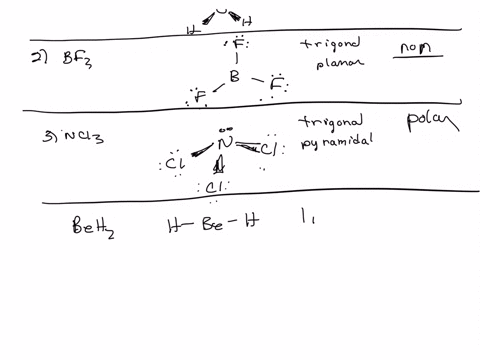 H H
2) BF3 trigonal planar non
F
B
F F
3) NCl3 trigonal pyramidal polar
N
Cl Cl
Cl
BeH2 H-Be-H li